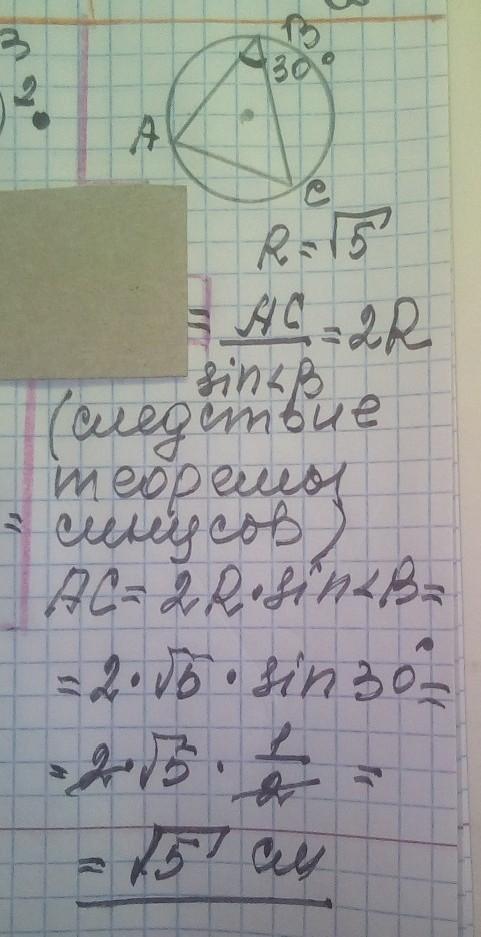 3
2
B
30°
A
C
R = √5
= AC / sin<B = 2R
(следствие
теоремы
синусов)
=
AC = 2R · sin<B =
= 2 · √5 · sin 30° =
= 2 · √5 · 1/2 =
= √5 см